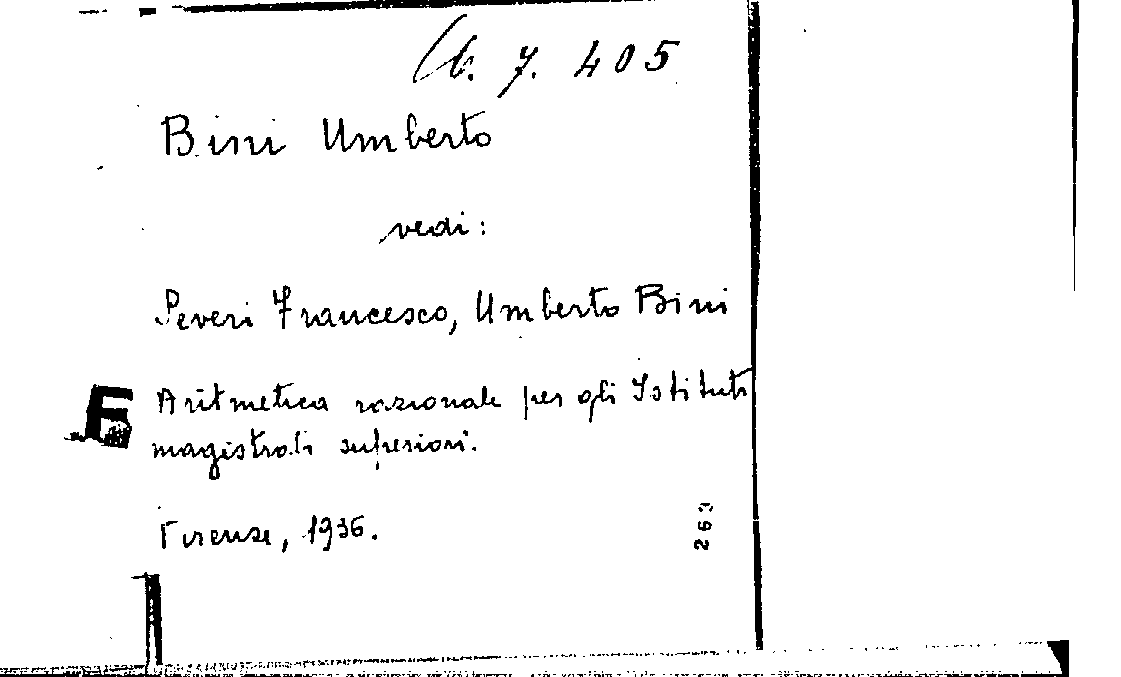 b. 7. 405
Bini Umberto
vedi:
Severi Francesco, Umberto Bini
Aritmetica razionale per gli Istituti
E
magistrali superiori.
Firenze, 1936.